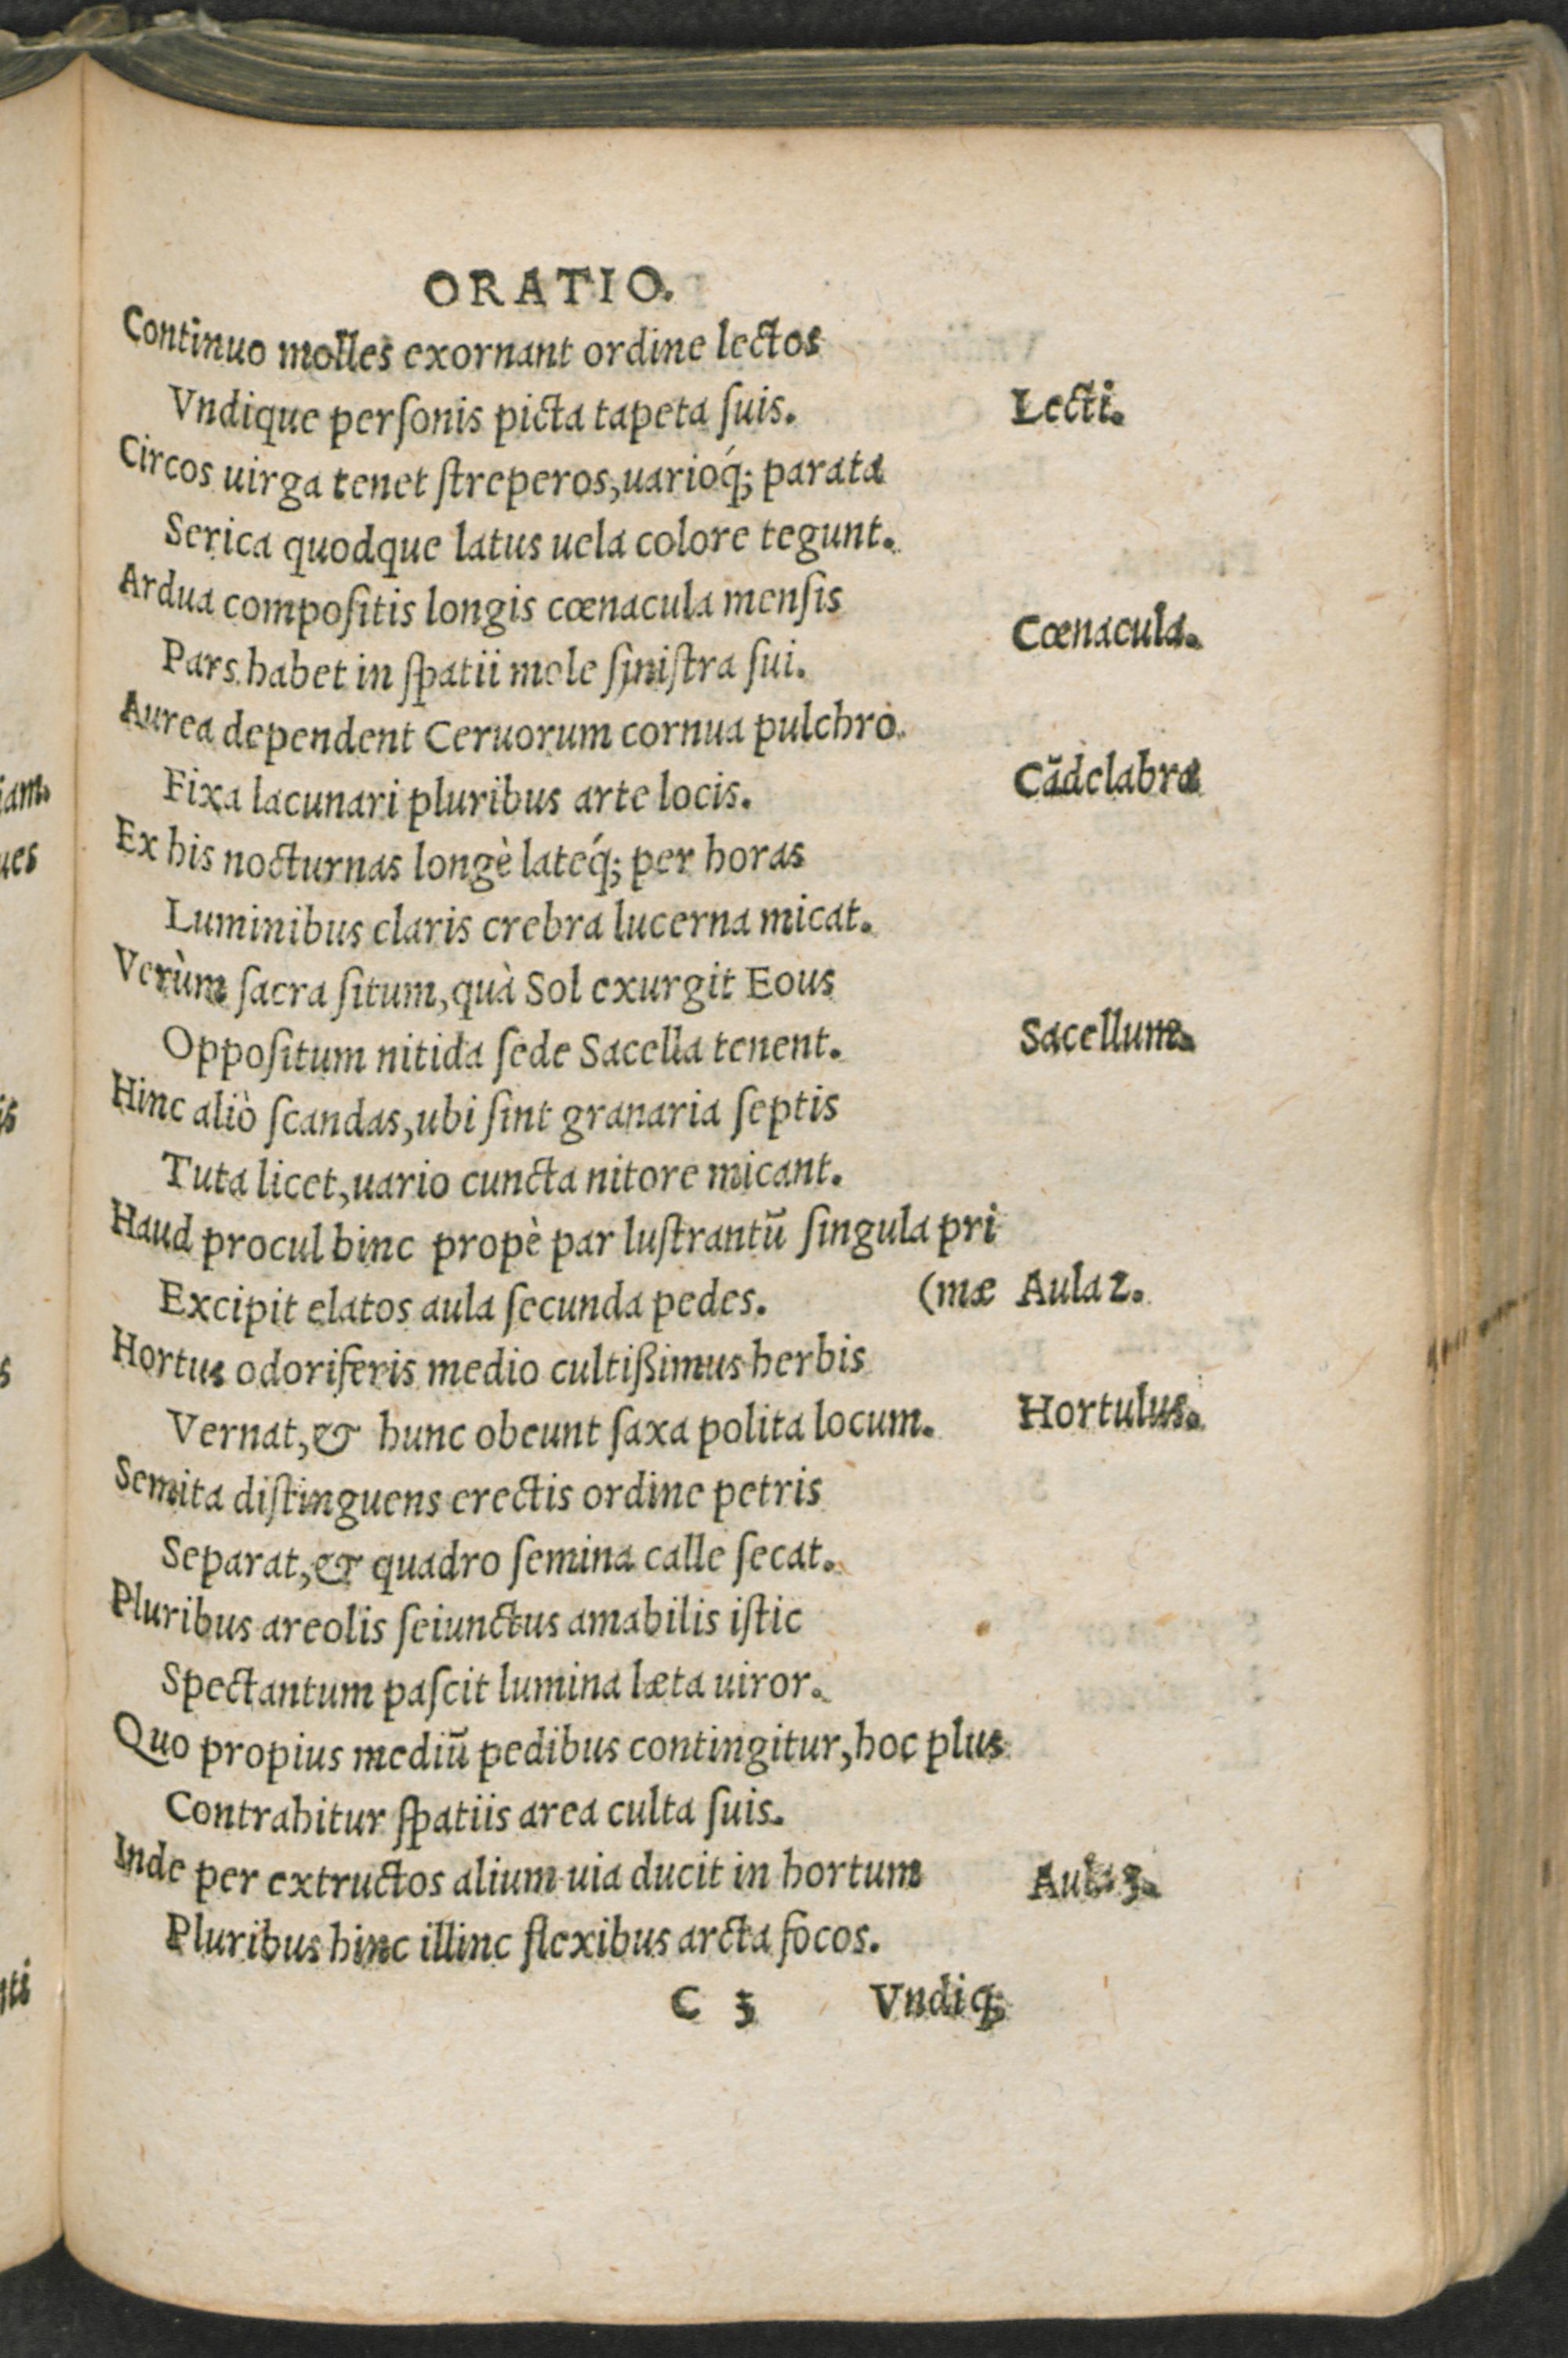 ORATIO.
Continuo molles exornant ordine lectos
Vndique perſonis picta tapeta ſuis. Lecti.
Circos uirga tenet ſtreperos, uarioq́; parata
Serica quodque latus uela colore tegunt.
Ardua compoſitis longis cœnacula menſis
Pars habet in ſpatii mole ſiniſtra ſui. Cœnacula.
Aurea dependent Ceruorum cornua pulchro
Fixa lacunari pluribus arte locis. Cãdelabra
Ex his nocturnas longè lateq́; per horas
Luminibus claris crebra lucerna micat.
Verùm ſacra ſitum, quà Sol exurgit Eous
Oppoſitum nitida ſede Sacella tenent. Sacellum.
Hinc aliò ſcandas, ubi ſint granaria ſeptis
Tuta licet, uario cuncta nitore micant.
Haud procul hinc propè par luſtrantũ ſingula pri
Excipit elatos aula ſecunda pedes. (mæ Aula 2.
Hortus odoriferis medio cultißimus herbis
Vernat, & hunc obeunt ſaxa polita locum. Hortulus.
Semita diſtinguens erectis ordine petris
Separat, & quadro ſemina calle ſecat.
Pluribus areolis ſeiunctus amabilis iſtic
Spectantum paſcit lumina læta uiror.
Quo propius mediũ pedibus contingitur, hoc plus
Contrahitur ſpatiis area culta ſuis.
Inde per extructos alium uia ducit in hortum Aula 3.
Pluribus hinc illinc flexibus arcta focos.
C 3 Vndiq;